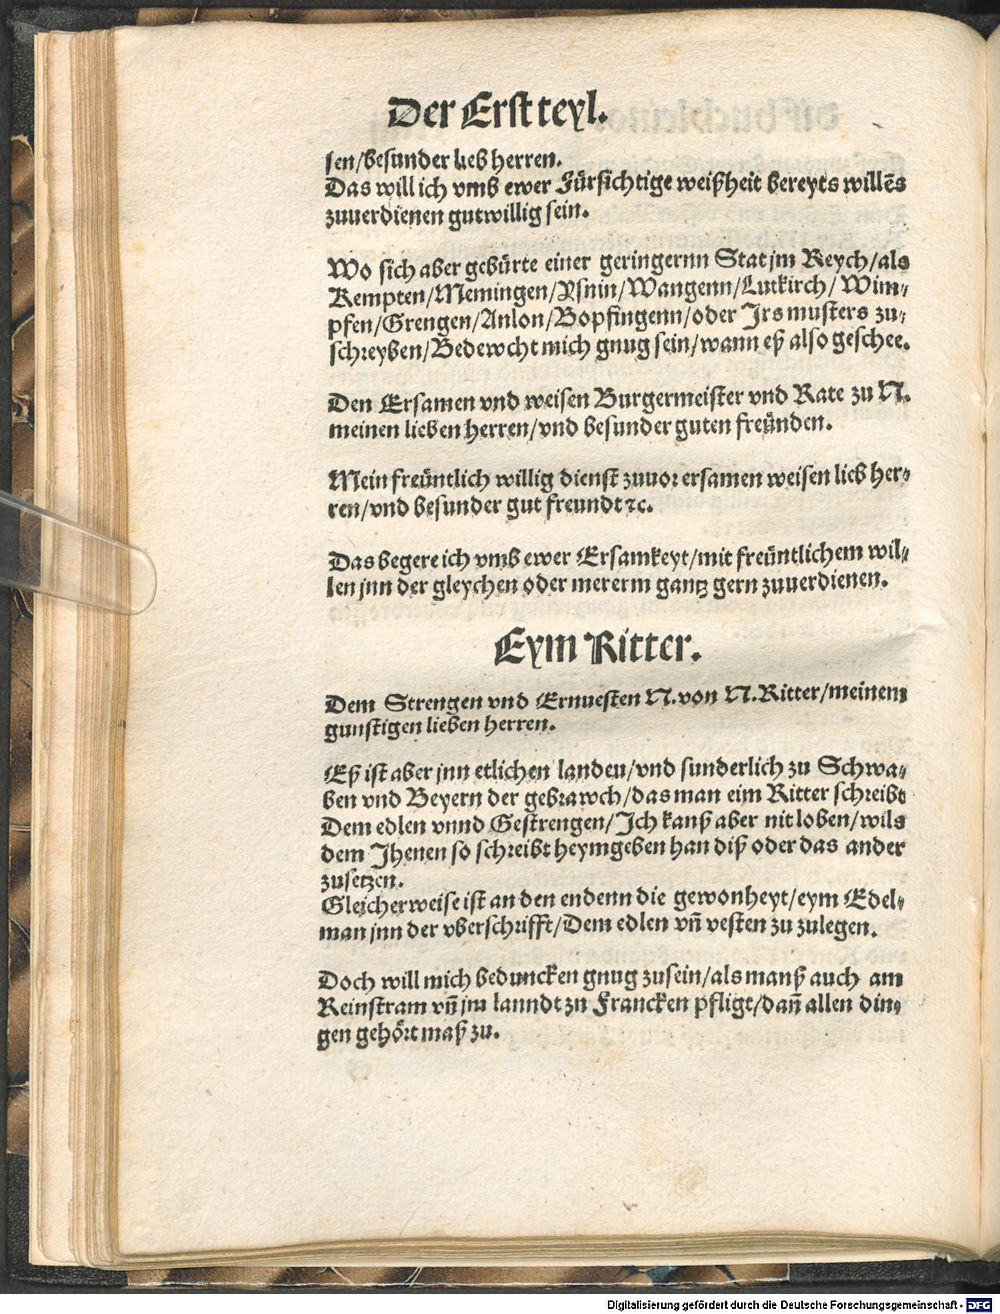 Der Erst teyl.
sen/besunder lieb herren.
Das will ich vmb ewer Fürsichtige weißheit bereyts willēs
zuuerdienen gutwillig sein.
Wo sich aber gebürte einer geringernn Stat jm Reych/als
Kempten/Memingen/Ysnin/Wangenn/Lutkirch/Wim⸗
pfen/Grengen/Anlon/Bopfingenn/oder Irs musters zu⸗
schreyben/Bedewcht mich gnug sein/wann eß also geschee.
Den Ersamen vnd weisen Burgermeister vnd Rate zu N.
meinen lieben herren/vnd besunder guten freünden.
Mein freüntlich willig dienst zuuor ersamen weisen lieb her⸗
ren/vnd besunder gut freundt ⁊c.
Das begere ich vmb ewer Ersamkeyt/mit freüntlichem wil⸗
len jnn der gleychen oder mererm gantz gern zuuerdienen.
Eym Ritter.
Dem Strengen vnd Ernuesten N. von N. Ritter/meinem
gunstigen lieben herren.
Eß ist aber jnn etlichen landen/vnd sunderlich zu Schwa⸗
ben vnd Beyern der gebrawch/das man eim Ritter schreibt
Dem edlen vnnd Gestrengen/Ich kanß aber nit loben/wils
dem Jhenen so schreibt heymgeben han diß oder das ander
zusetzen.
Gleicherweise ist an den endenn die gewonheyt/eym Edel⸗
man jnn der vberschrifft/Dem edlen vn̄ vesten zu zulegen.
Doch will mich beduncken gnug zusein/als manß auch am
Reinstram vn̄ jm lanndt zu Francken pfligt/dan̄ allen din⸗
gen gehört maß zu.
Digitalisierung gefördert durch die Deutsche Forschungsgemeinschaft - DFG